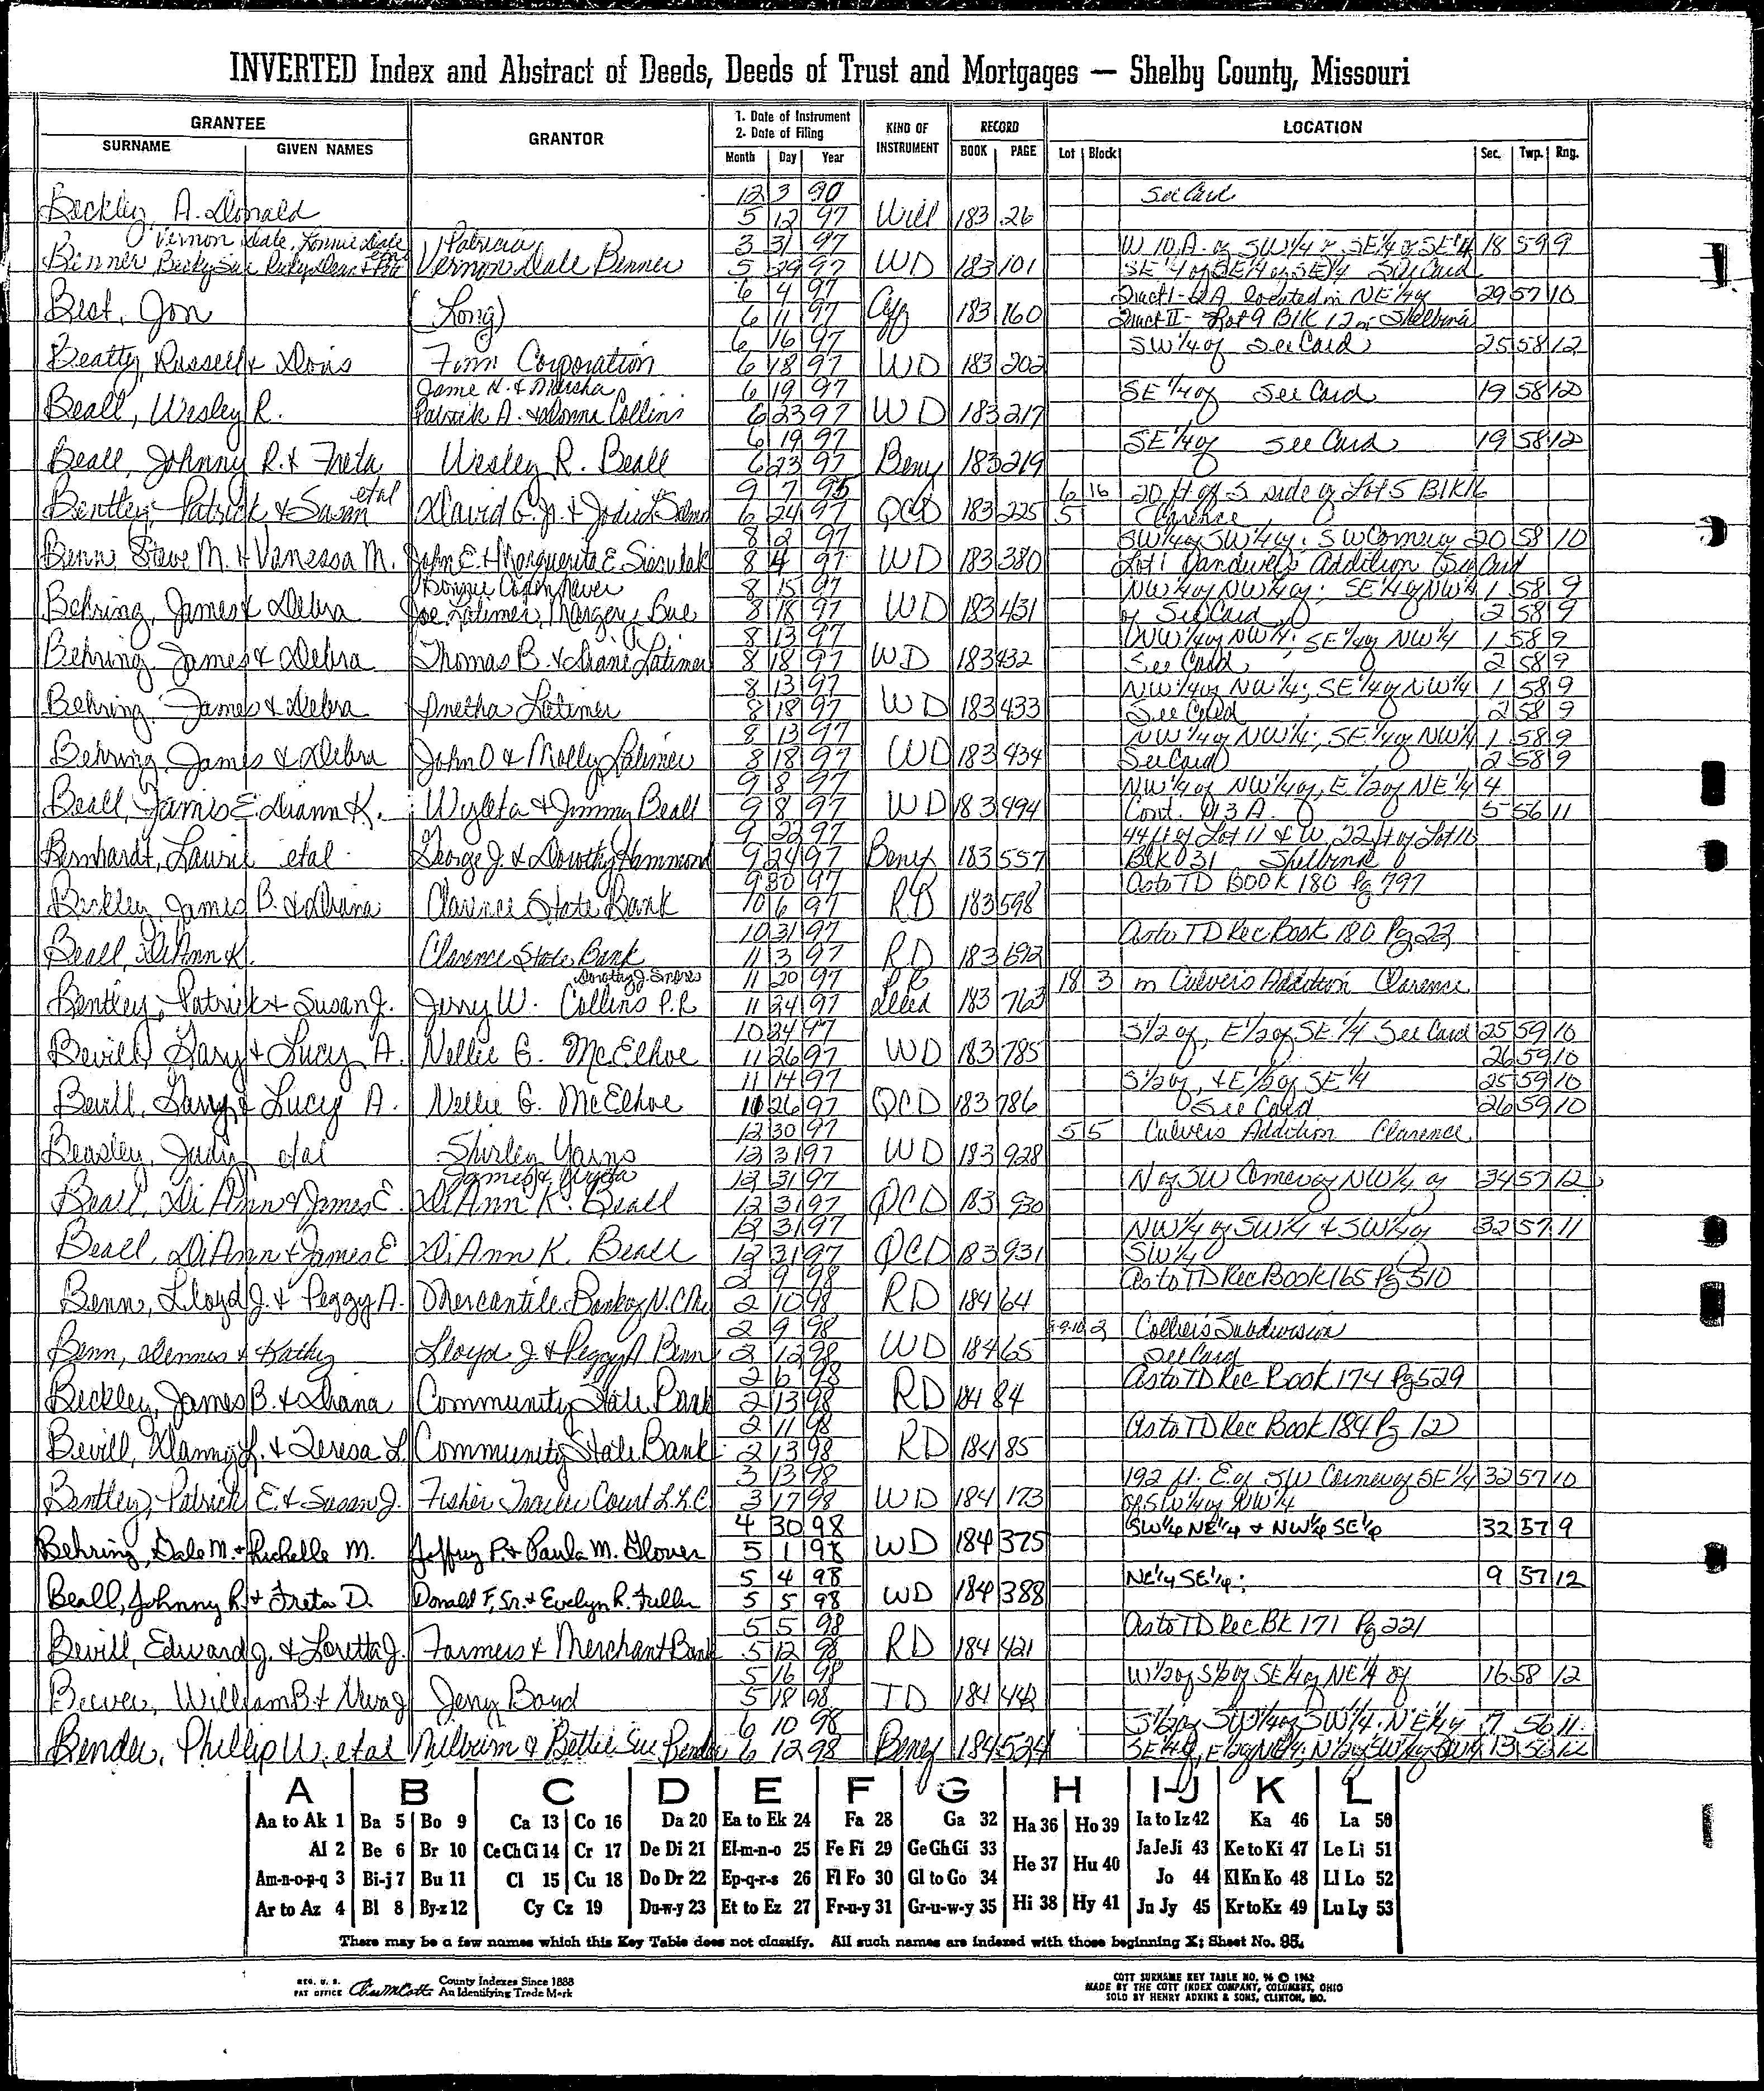 INVERTED Index and Abstract of Deeds, Deeds of Trust and Mortgages — Shelby County, Missouri
GRANTEE GRANTOR 1. Date of Instrument 2. Date of Filing KIND OF INSTRUMENT RECORD LOCATION
SURNAME GIVEN NAMES Month Day Year BOOK PAGE Lot Block Sec. Twp. Rng.
12 3 90 See Card
Beckley, A. Donald 5 12 97 Will 183 26
Vernon Dale, Lonnie Dale Patricia 3 31 97 W 10 A. of SW 1/4 of SE 1/4 of SE 1/4 18 59 9
Benner Becky Sue Vernon Dale Benner 5 29 97 WD 183 101 SE 1/4 of SE 1/4 of SE 1/4 See Card
6 4 97 Tract I - located in NE 1/4 of 29 57 10
Best, Jon (Long) 6 11 97 Aff 183 160 Tract II - Lot 9 Blk 12 in Shelbina
6 16 97 SW 1/4 of See Card 25 58 12
Beatty, Russell & Doris Finn Corporation 6 18 97 WD 183 202
Jame N. & Marsha 6 19 97 SE 1/4 of See Card 19 58 12
Beall, Wesley R. Patrick A. & Donna Collins 6 23 97 WD 183 217
6 19 97 SE 1/4 of See Card 19 58 12
Beall, Johnny R. & Freta Wesley R. Beall 6 23 97 Beny 183 219
etal 9 7 95 6 16 20 ft of S side of Lot 5 Blk 16
Bentley, Patrick & Susan David G. Jr. & 6 24 97 QCD 183 225 5 Clarence
8 2 97 SW 1/4 of SW 1/4 of; SW Corner of 20 58 10
Benn, Steve M. & Vanessa M. John E. & Marguerite E. 8 4 97 WD 183 380 Lot 1 Addition See Card
Bonnie 8 15 97 NW 1/4 of NW 1/4 of; SE 1/4 of NW 1/4 1 58 9
Behring, James & Debra Joe Latimer, Margery 8 18 97 WD 183 431 of See Card 2 58 9
8 13 97 NW 1/4 of NW 1/4; SE 1/4 of NW 1/4 1 58 9
Behring, James & Debra Thomas B. & Diane Latimer 8 18 97 WD 183 432 See Card 2 58 9
8 13 97 NW 1/4 of NW 1/4; SE 1/4 of NW 1/4 1 58 9
Behring, James & Debra Latimer 8 18 97 WD 183 433 See Card 2 58 9
8 13 97 NW 1/4 of NW 1/4; SE 1/4 of NW 1/4 1 58 9
Behring, James & Debra John D & Molly Latimer 8 18 97 WD 183 434 See Card 2 58 9
9 8 97 NW 1/4 of NW 1/4 of, E 1/2 of NE 1/4 4
Beall, James E. Diann K. Wyleta & Jimmy Beall 9 8 97 WD 183 494 Cont. A. 5 56 11
9 22 97 44 ft of Lot 11 & W. 22 ft of Lot 10
Bernhardt, Laurie etal George J. & Dorothy Hammond 9 24 97 Beny 183 557 Blk 31 Shelbina
9 30 97 As to TD Book 180 Pg 797
Beckley, James B. & Diana Clarence State Bank 10 6 97 RD 183 598
10 31 97 As to TD Rec Book 180 Pg 22
Beall, DiAnn K. Clarence State Bank 11 3 97 RD 183 692
Dorothy J. 11 20 97 P.R. 18 3 in Culver's Addition Clarence
Bentley, Patrick & Susan J. Jerry W. Collins P.R. 11 24 97 Deed 183 763
10 24 97 S 1/2 of, E 1/2 of SE 1/4 See Card 25 59 10
Bevill, Gary & Lucy A. Nellie G. McElhoe 11 26 97 WD 183 785 26 59 10
11 14 97 S 1/2 of, & E 1/2 of SE 1/4 25 59 10
Bevill, Gary & Lucy A. Nellie G. McElhoe 11 26 97 QCD 183 786 See Card 26 59 10
12 30 97 5 5 Culvers Addition Clarence
Beasley, Judy etal Shirley 12 31 97 WD 183 928
James & Wyleta 12 31 97 N of SW Corner of NW 1/4 of 34 57 12
Beall, DiAnn & James E. DiAnn K. Beall 12 31 97 QCD 183 930
12 31 97 NW 1/4 of SW 1/4 & SW 1/4 of 32 57 11
Beall, DiAnn & James E DiAnn K. Beall 12 31 97 QCD 183 931 SW 1/4
2 9 98 As to TD Rec Book 165 Pg 510
Benn, Lloyd J. & Peggy A. Mercantile Bank of N.C. 2 10 98 RD 184 64
2 9 98 9-10 2 Collier's Subdivision
Benn, Dennis & Kathy Lloyd J. & Peggy A Benn 2 12 98 WD 184 65 See Card
2 6 98 As to TD Rec Book 174 Pg 529
Beckley, James B. & Diana Community State Bank 2 13 98 RD 184 84
2 11 98 As to TD Rec Book 184 Pg 12
Bevill, Danny L. & Teresa L. Community State Bank 2 13 98 RD 184 85
3 13 98 192 ft. E of SW Corner of SE 1/4 32 57 10
Bentley, Patrick E. & Susan J. Fisher Trailer Court L.L.C 3 17 98 WD 184 173 of SW 1/4 of NW 1/4
4 30 98 SW 1/4 NE 1/4 & NW 1/4 SE 1/4 32 57 9
Behring, Dale M. & Richelle M. Jeffrey P. & Paula M. Glover 5 1 98 WD 184 375
5 4 98 NE 1/4 SE 1/4; 9 57 12
Beall, Johnny R. & Freta D. Donald F, Sr. & Evelyn R. Fuller 5 5 98 WD 184 388
5 5 98 As to TD Rec Bk 171 Pg 221
Bevill, Edward J. & Loretta J. Farmers & Merchant Bank 5 12 98 RD 184 421
5 16 98 W 1/2 of S 1/2 of SE 1/4 of NE 1/4 of 16 58 12
Beever, William B & Jerry Boyd 5 18 98 TD 184 442
6 10 98 S 1/2 of SW 1/4 of SW 1/4. NE 1/4 7 56 11
Bender, Phillip W. etal & Bettie Sue Bender 6 12 98 Beny 184 524 SE 1/4 of, E 1/2 of NE 1/4; N 1/2 of SW 1/4 of 13 56
A B C D E F G H I-J K L
Aa to Ak 1 Ba 5 Bo 9 Ca 13 Co 16 Da 20 Ea to Ek 24 Fa 28 Ga 32 Ha 36 Ho 39 Ia to Iz 42 Ka 46 La 50
Al 2 Be 6 Br 10 Ce Ch Ci 14 Cr 17 De Di 21 El-m-n-o 25 Fe Fi 29 Ge Gh Gi 33 He 37 Hu 40 Ja Je Ji 43 Ke to Ki 47 Le Li 51
Am-n-o-p-q 3 Bi-j 7 Bu 11 Cl 15 Cu 18 Do Dr 22 Ep-q-r-s 26 Fl Fo 30 Gl to Go 34 Jo 44 Kl Kn Ko 48 Ll Lo 52
Ar to Az 4 Bl 8 By-z 12 Cy Cz 19 Du-w-y 23 Et to Ez 27 Fr-u-y 31 Gr-u-w-y 35 Hi 38 Hy 41 Ju Jy 45 Kr to Kz 49 Lu Ly 53
There may be a few names which this Key Table does not classify. All such names are indexed with those beginning X; Sheet No. 95.
REG. U. S. PAT OFFICE County Indexes Since 1888 An Identifying Trade Mark
COTT SURNAME KEY TABLE NO. 96 © 1962
MADE BY THE COTT INDEX COMPANY, COLUMBUS, OHIO
SOLD BY HENRY ADKINS & SONS, CLINTON, MO.